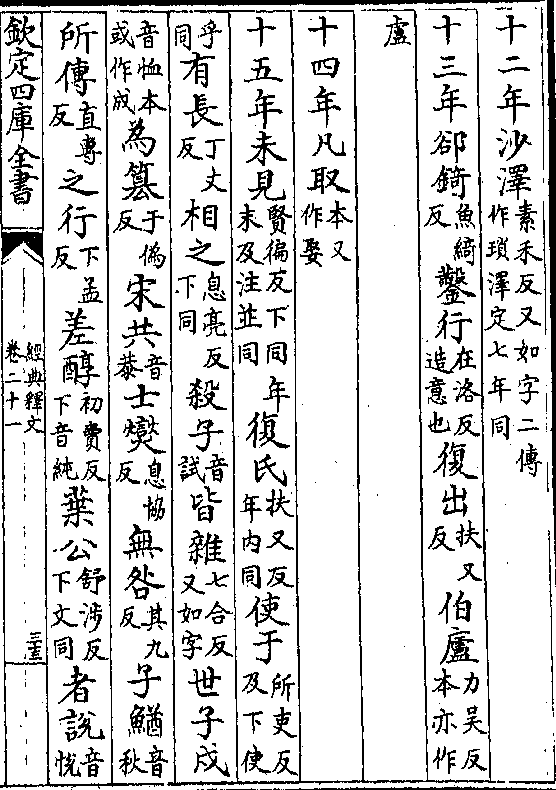 十二年沙澤素禾反又如字二傳作瑣澤定七年同
十三年郤錡魚綺反鑿行在洛反造意也復出扶又反伯廬力吴反本亦作
盧
十四年凡取本又作娶
十五年未見賢徧反下同末及注並同年復氏扶又反年内同使于所吏反及下使
同乎有長丁丈反相之息亮反下同殺子音試皆雜七合反又如字世子成
音恤本或作成為簒于偽反宋共音恭士燮息協反無咎其九反子鰌音秋
所傳直專反之行下孟反差醇初賣反下音純葉公舒涉反下文同者說音悅
欽定四庫全書
經典釋文
卷二十一
三三